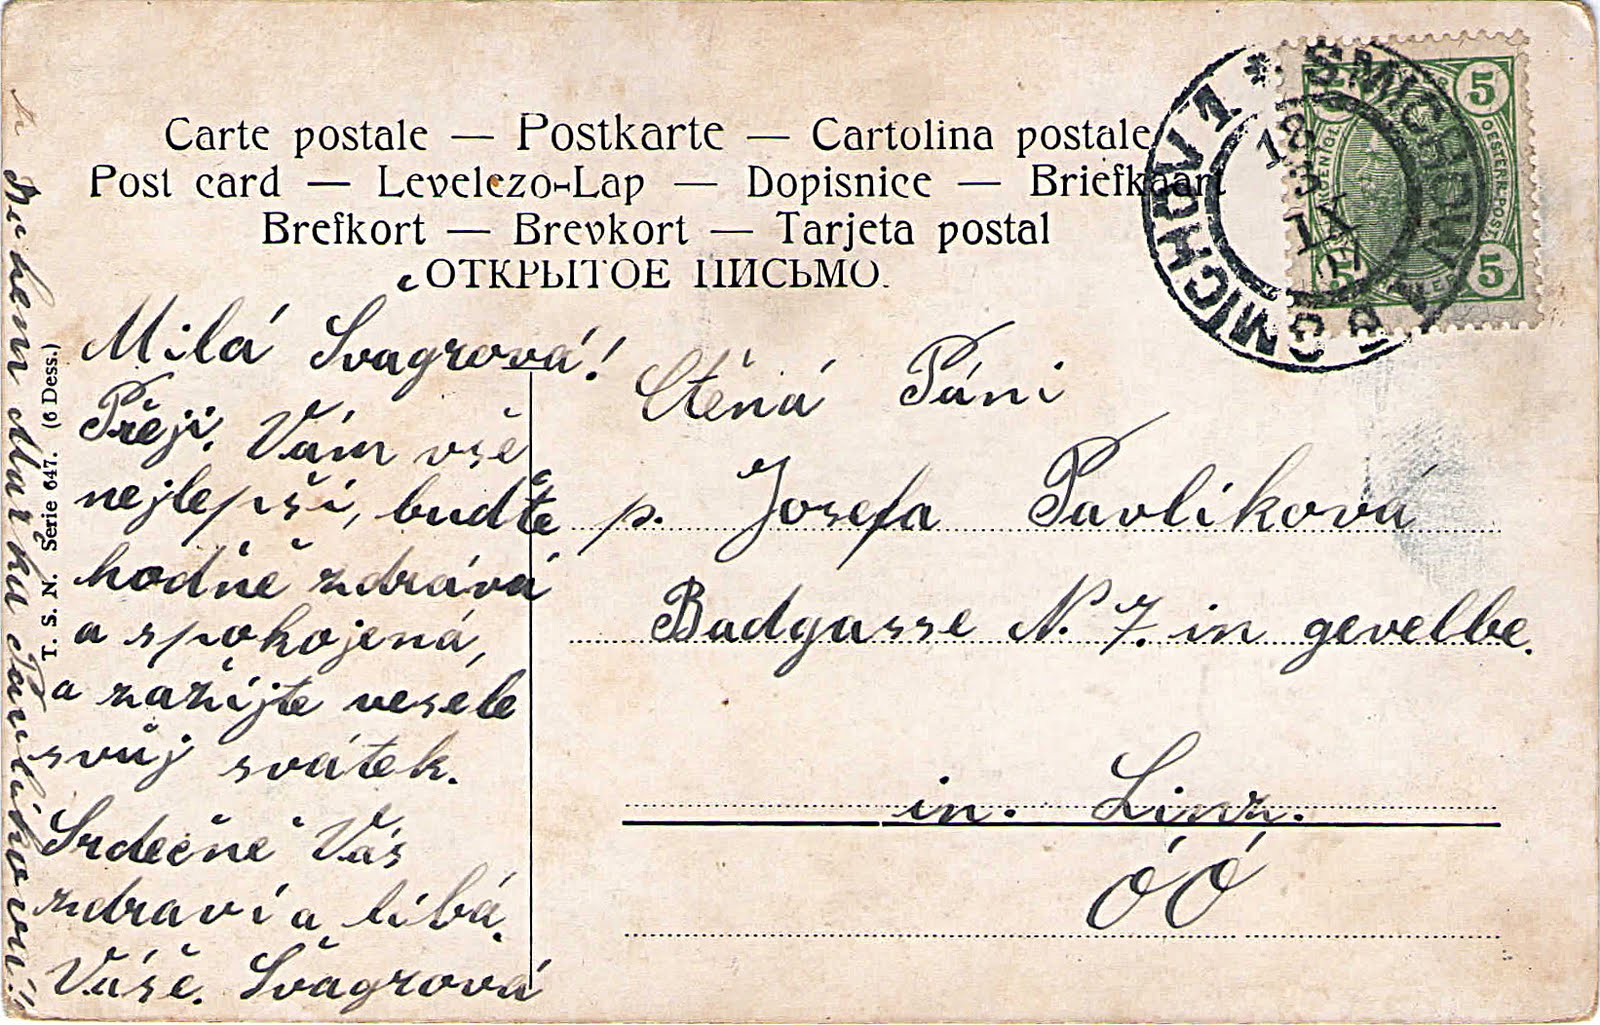 Carte postale — Postkarte — Cartolina postale
Post card — Levelezo-Lap — Dopisnice — Briefkaart
Brefkort — Brevkort — Tarjeta postal
ОТКРЫТОЕ ПИСЬМО.
SMICHOV 1
SMICHOW 1
18
3
IX
07
5
5
5
OESTERR. POST
Milá Švagrová!
Přeji Vám vše
nejlepší, buďte
hodně zdráva
a spokojená,
a zažijte vesele
svůj svátek.
Srdečně Vás
zdraví a líbá
Váše. Švagrová
Ctěná Páni
p. Josefa Pavlíková
Badgasse N. 7. in gevelbe.
in. Linz.
ÓÓ
T. S. N. Serie 647. (6 Dess.)
Pavlíkovu